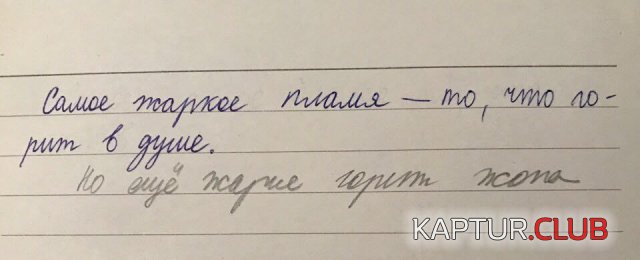 Самое жаркое пламя — то, что го-
рит в душе.
Но ещё жарче горит жопа
KAPTUR.CLUB